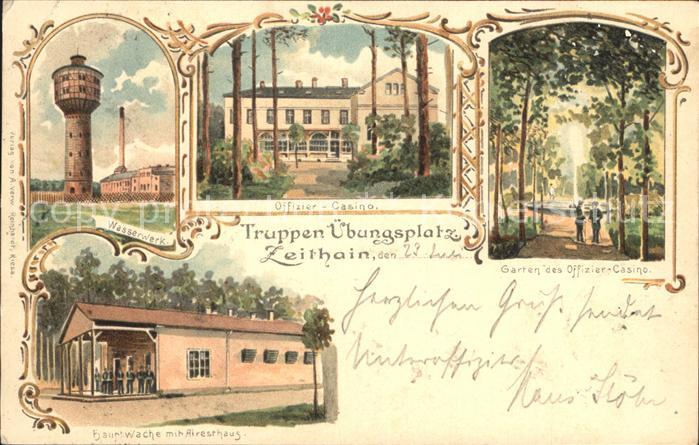 Wasserwerk.
Offizier - Casino.
Garten des Offizier-Casino.
Truppen Übungsplatz
Zeithain, den 23
Herzlichen Gruß sendet
Unteroffizier
Hans
Hauptwache mit Arresthaus.
Verlag von
Riesa.